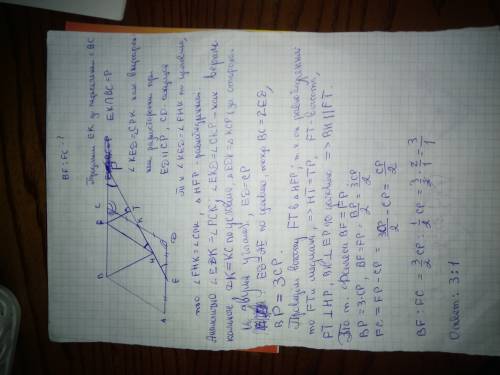 BF : FC = ?
Продлим EK до пересечения с BC
EK∩BC=P
∠KED=∠CPK как внутрен
ние разносторонние при
ED||CP, CD-секущей
т.к. ∠KED=∠FHK по условию,
то ∠FHK=∠CPK, △HFP - равнобедренный
Аналогично ∠EDK=∠PCK, ∠EKD=∠CKP - как верти
кальные DK=KC по условию, △EDK=△KCP (по стороне
и двум углам), ED=CP
ED=AE по условию, тогда BC=2ED,
BP=3CP.
Проведем высоту FT в △HFP, т.к. он равнобедренный
то FT и медиана, => HT=TP, FT-высота,
FT⊥HP, BH⊥EP по условию => BH||FT.
По т. Фалеса BF=FP.
BP=3CP BF=FP= BP/2 = 3CP/2
FC=FP-CP= 3CP/2 - CP= CP/2
BF : FC = 3/2 CP : 1/2 CP = 3/2 · 2/1 = 3/1
Ответ: 3:1